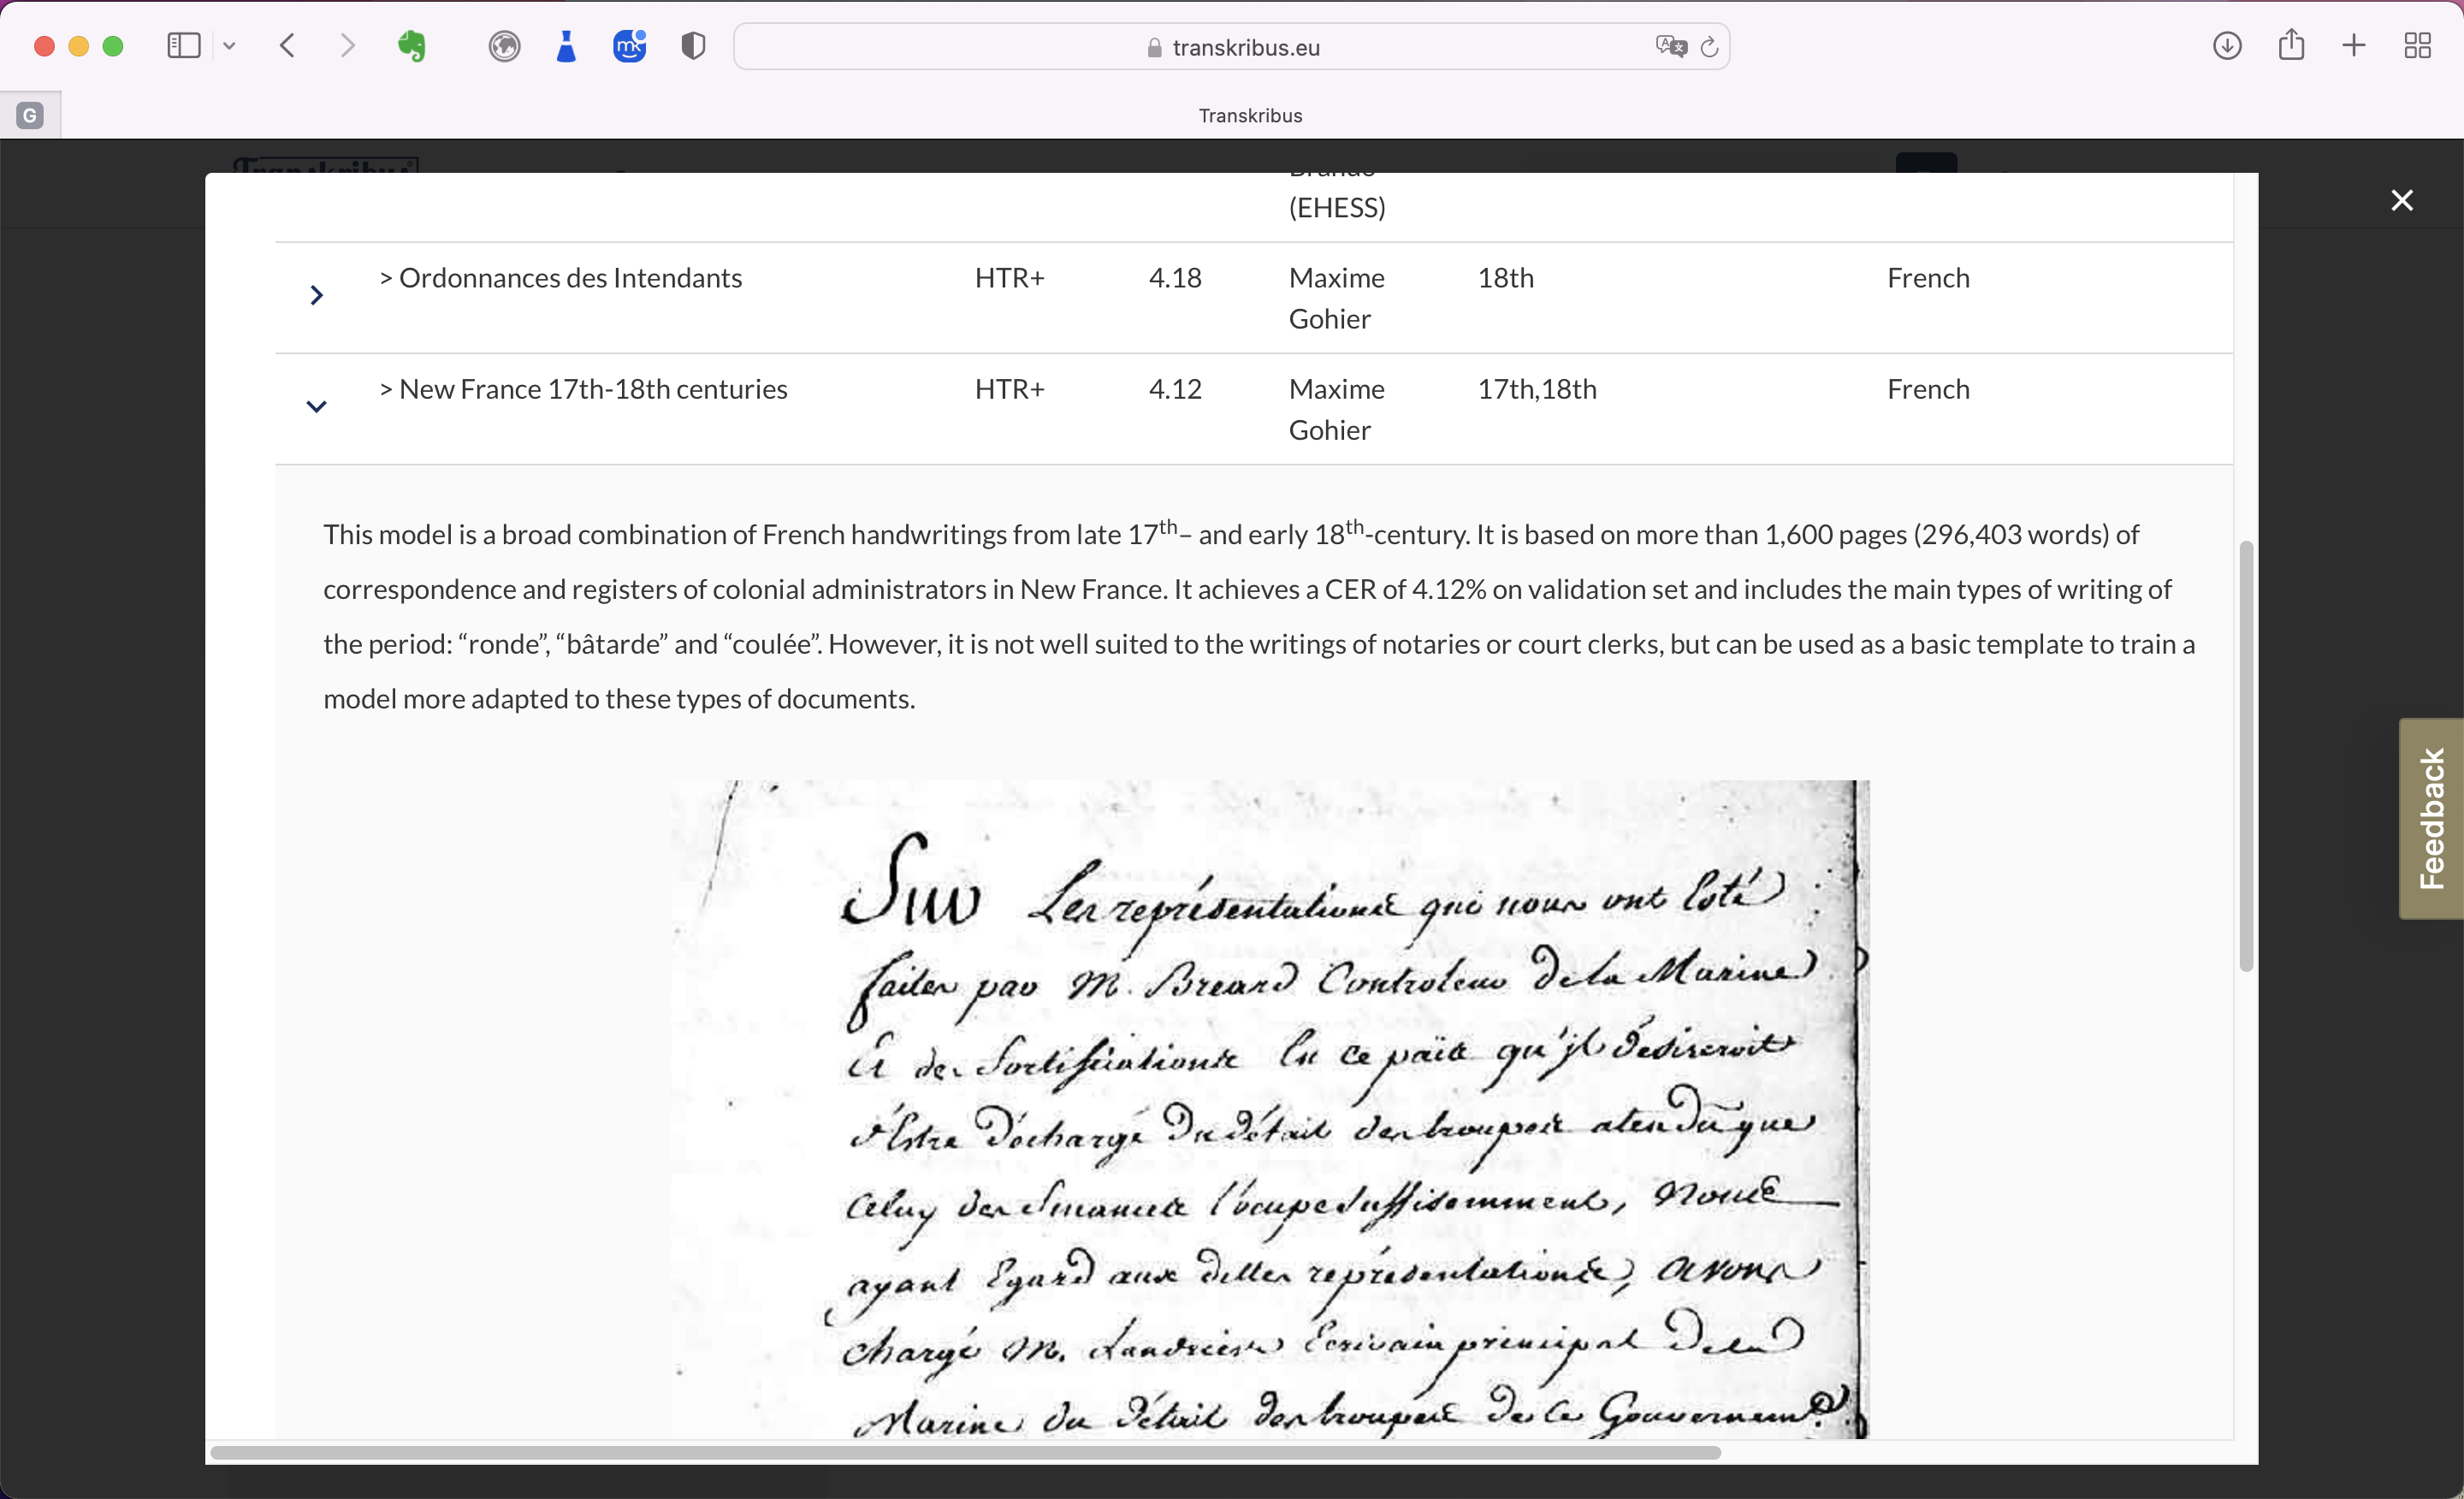 transkribus.eu
G
Transkribus
Transkribus
(EHESS)
> Ordonnances des Intendants HTR+ 4.18 Maxime Gohier 18th French
> New France 17th-18th centuries HTR+ 4.12 Maxime Gohier 17th,18th French
This model is a broad combination of French handwritings from late 17th– and early 18th-century. It is based on more than 1,600 pages (296,403 words) of
correspondence and registers of colonial administrators in New France. It achieves a CER of 4.12% on validation set and includes the main types of writing of
the period: “ronde”, “bâtarde” and “coulée”. However, it is not well suited to the writings of notaries or court clerks, but can be used as a basic template to train a
model more adapted to these types of documents.
Sur Les représentations que nous ont Esté
faites par M. Breard Controleur De la Marine
Et des fortifications En ce païs qu'jl désireroit
d'Estre Déchargé Du Détail des troupes atendu que
Celuy des finances l'ocupe suffisamment, Nous
ayant Egard aux dittes représentations, avons
chargé M. Landriève Ecrivain principal De la
Marine du Détail des troupes De ce Gouvernement
Feedback